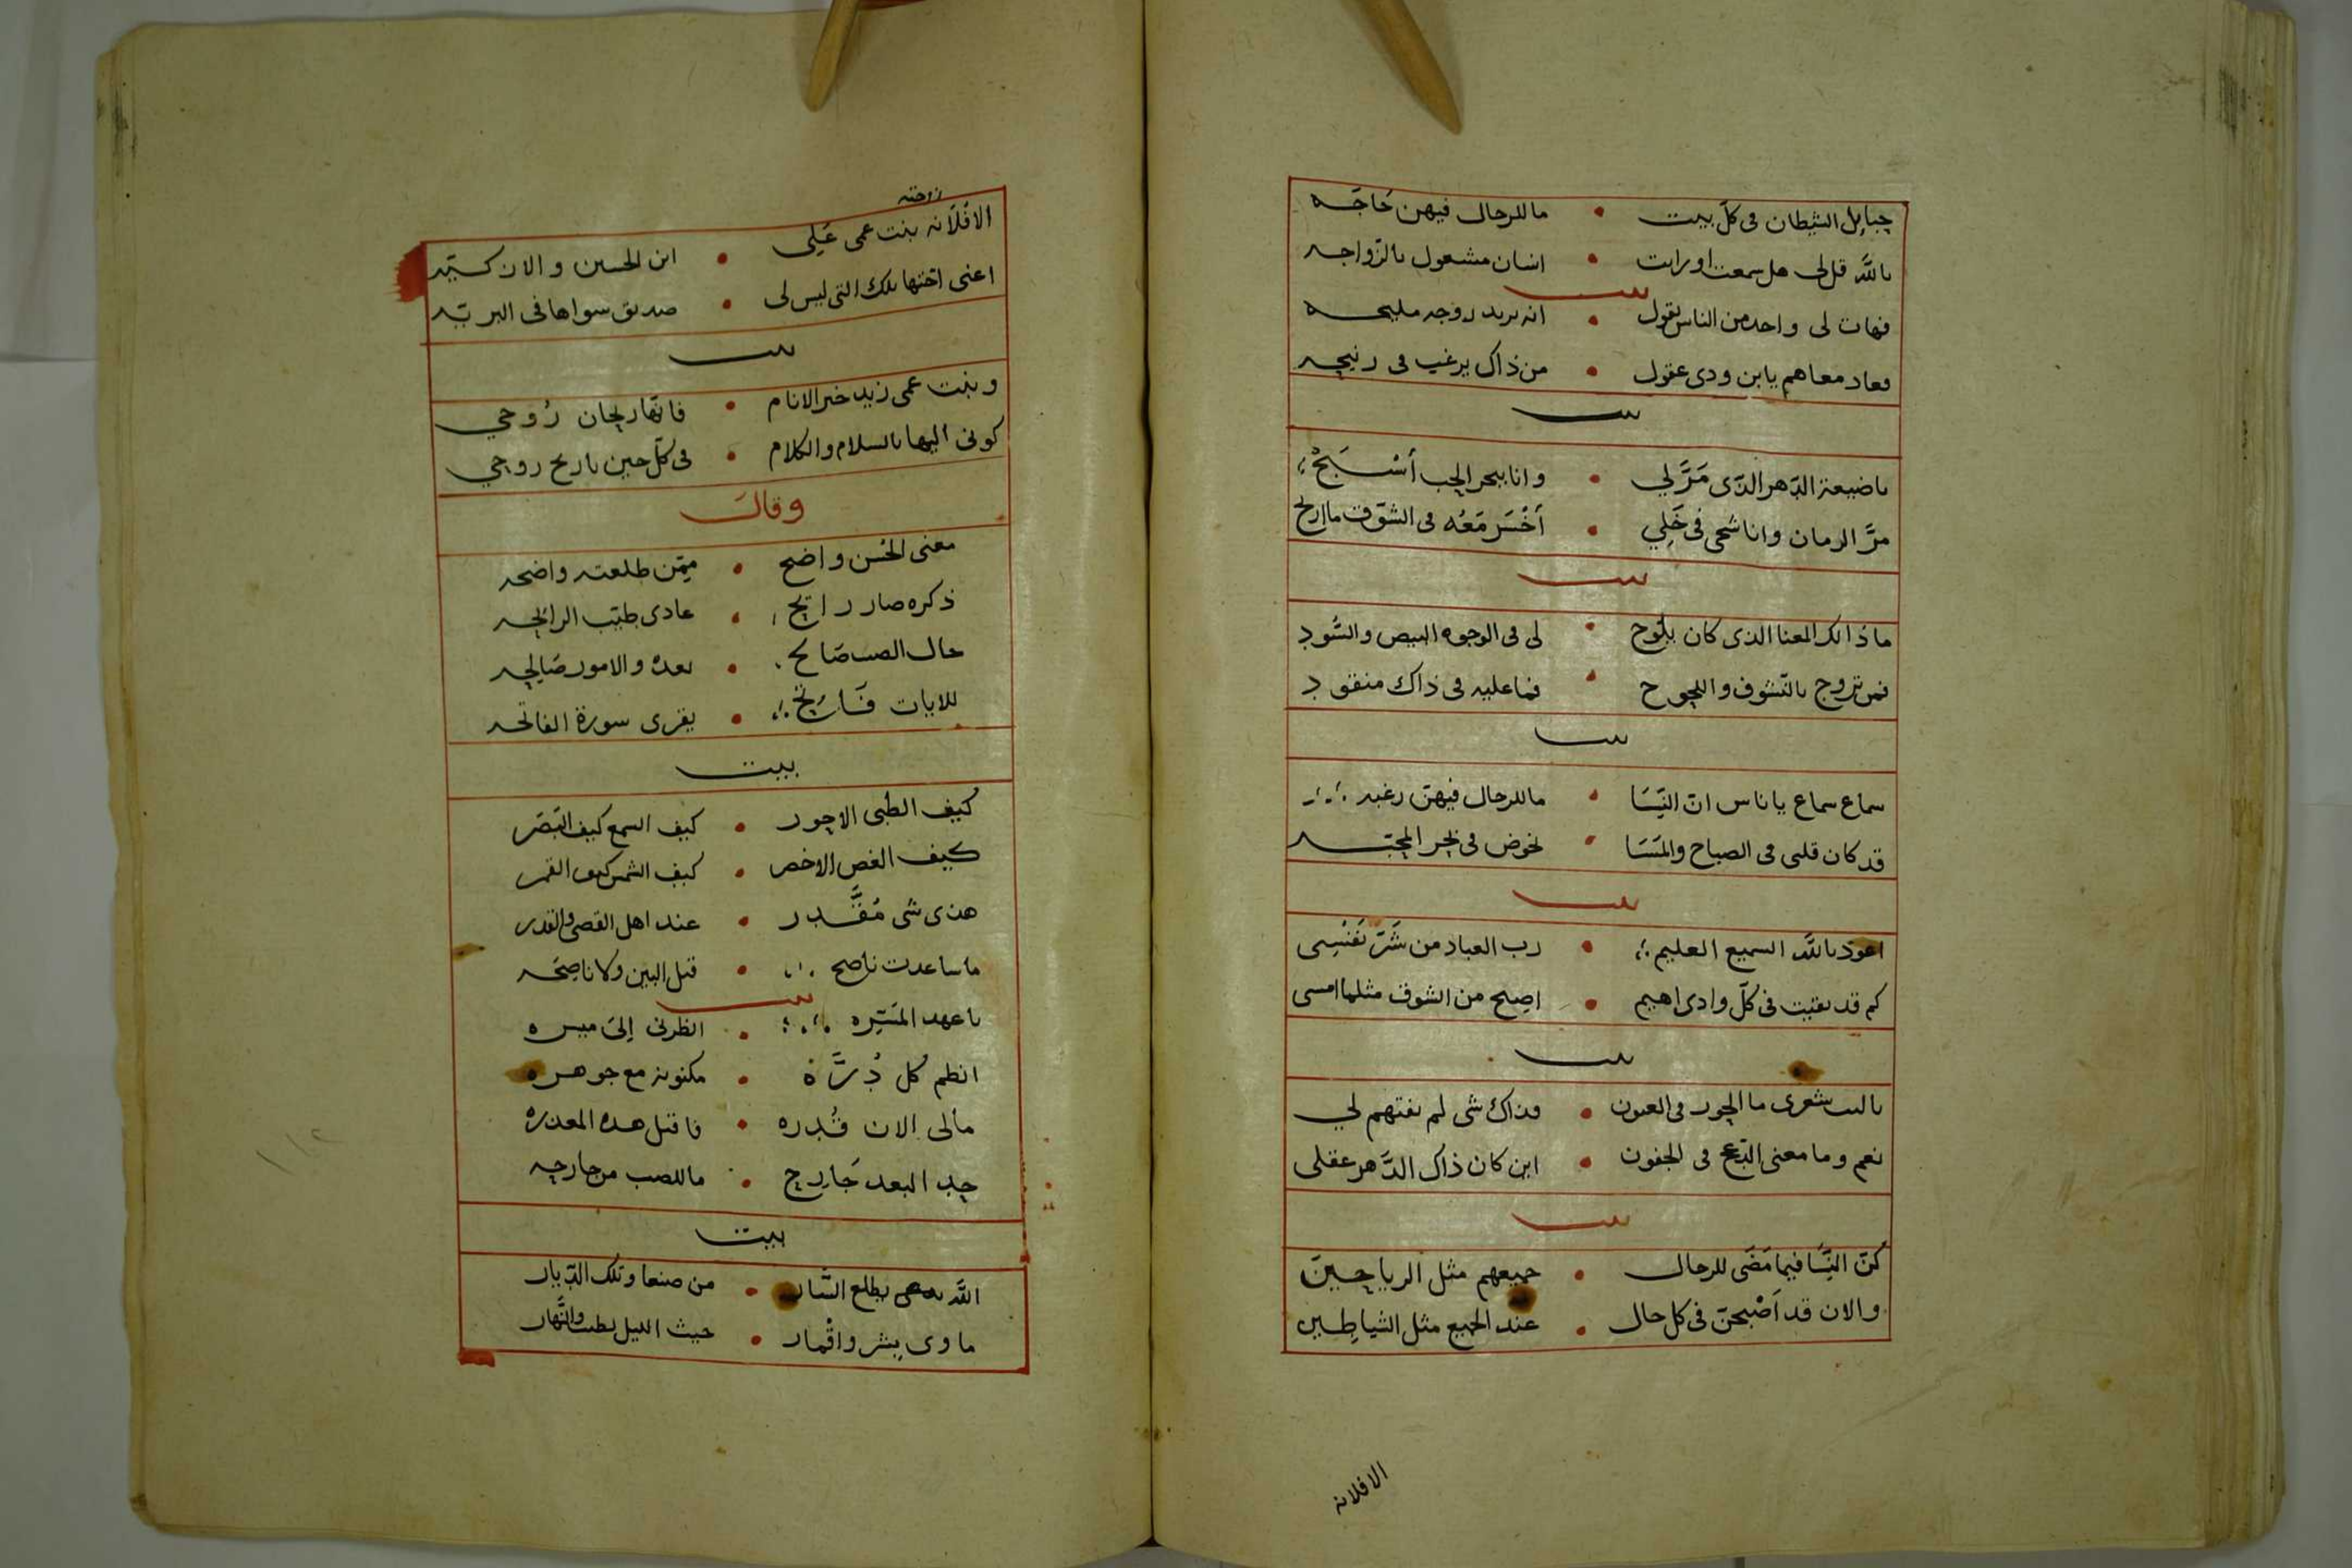 حبايل الشيطان في كل بيت • ما للرجال فيهن حَاجَه
بالله قل لي هل سمعت او رايت • انسان مشغول بالزواجه
بيت
فهات لي واحد من الناس يقول • انه يريد زوجه مليحه
وعاد معاهم يا بن ودي عقول • من ذاك يرغب في
بيت
يا ضيعة الدهر الذي مَرَّ لي • وانا ببحر الحب أَسْبَحْ
مرَّ الزمان وانا شجي في خَلِي • أَخْسَر مَعُه في الشوق ما اربح
بيت
ما ذالك المعنا الذي كان يلوح • لي في الوجوه البيض والسُّود
فمن تزوج بالتشوف والجوح • فما عليه في ذاك منقود
بيت
سماع سماع يا ناس ان النِّسَا • ما للرجال فيهن رغبه
قد كان قلبي في الصباح والمَسَا • يخوض في بحر المحبه
بيت
اعوذ بالله السميع العليم • رب العباد من شَرّ نَفْسِي
كم قد بقيت في كل وادي اهيم • اصبح من الشوق مثلما امسي
بيت
يا ليت شعري ما الحور في العيون • وذاك شي لم يفتهم لي
نعم وما معنى الدعج في الجفون • اين كان ذاك الدَّهر عقلي
بيت
كُنّ النِّسَا فيما مَضَى للرجال • جميعهم مثل الرياحين
والان قد اَصْبحنّ في كل حال • عند الجميع مثل الشياطِين
الافلانه
زوجته
الافْلَانه بنت عمي عَلِي • ابن الحسين والان
اعني اختها تلك التي ليس لي • صديق سواها في البريّه
بيت
وبنت عمي زيد خير الانام • فانها ريحان رُوحي
كوني اليها بالسلام والكلام • في كل حين يا ريح روحي
وقال
معنى الحُسن واضح • مِمّن طلعته واضحه
ذكره صار رايح • غادي طيّب الرايحه
حال الصب صَالح • بعده والامور صَالحه
للايات فَاتِح • يقرى سورة الفاتحه
بيت
كيف الظبي الاحور • كيف السمع كيف البَصَر
كيف الغصن الاخضر • كيف الشمس كيف القمر
هذي شي مُقَدَّر • عند اهل القضى والقدر
ما ساعدت ناصح • قبل البين ولا ناصِحَه
بيت
يا عهد المَسَرِّه • انظرني إلى ميسره
انظم كل دُرَّة • مكنونة مع جوهره
ما لي الان قُدره • فاقبل هذه المعذره
حد البعد جَارح • ما للصب من جارحه
بيت
الله يطلع الشان • من صنعا وتلك الديار
ماوى بشر واقْمار • حيث الليل والنَّهار
١١٢